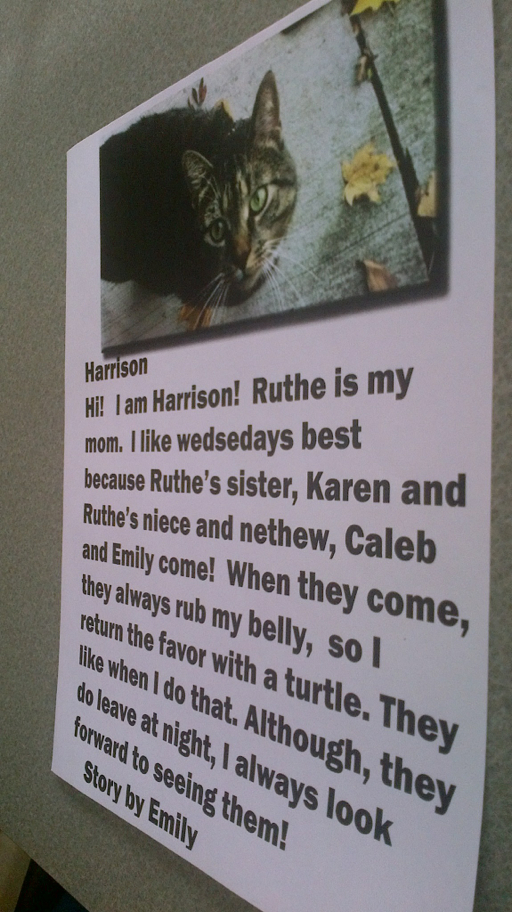 Harrison
Hi! I am Harrison! Ruthe is my
mom. I like wedsedays best
because Ruthe's sister, Karen and
Ruthe's niece and nethew, Caleb
and Emily come! When they come,
they always rub my belly, so I
return the favor with a turtle. They
like when I do that. Although, they
do leave at night, I always look
forward to seeing them!
Story by Emily